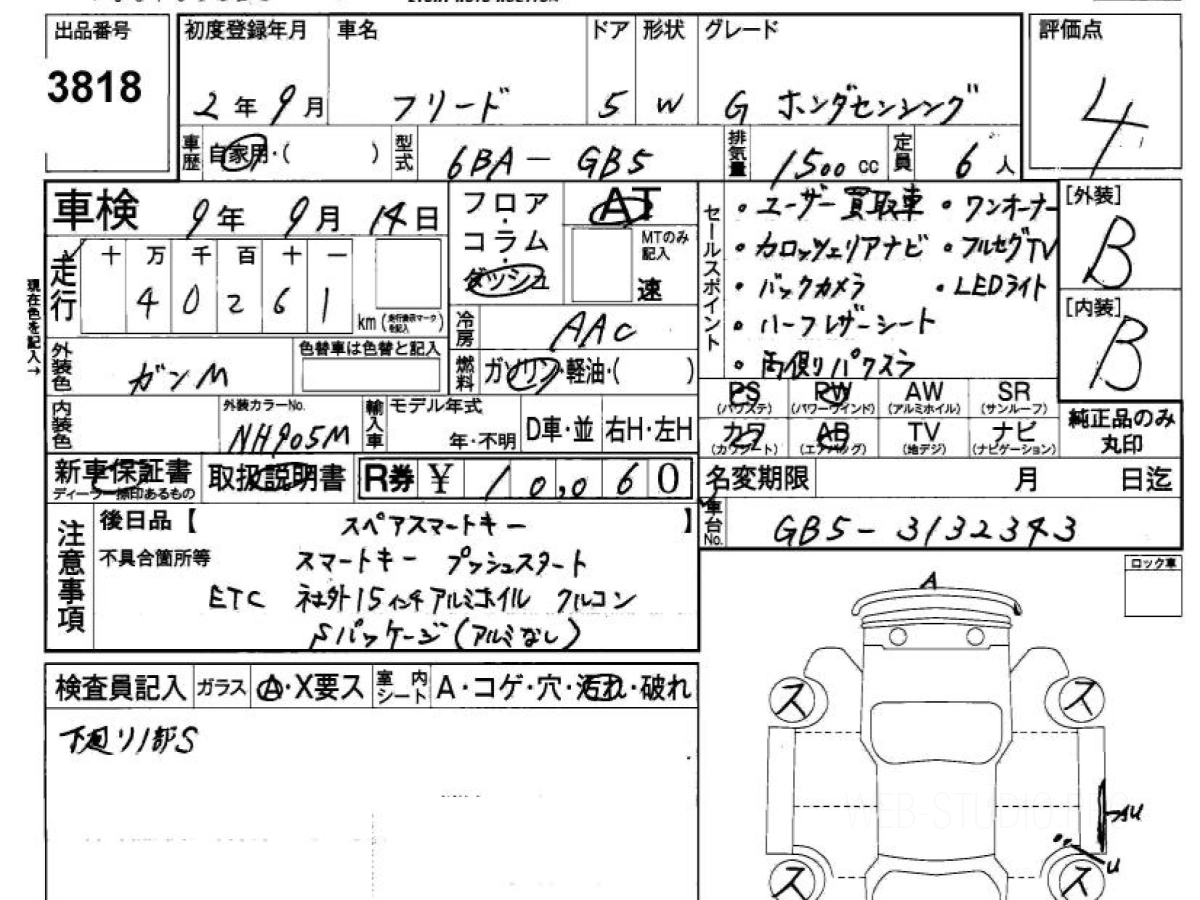 出品番号 初度登録年月 車名 ドア 形状 グレード 評価点
3818 2年9月 フリード 5 W G ホンダセンシング 4
車歴 自家用・( ) 型式 6BA-GB5 排気量 1500cc 定員 6人
車検 9年9月14日 フロア・コラム・ダッシュ AT
MTのみ記入 速
走行 十万千百十一
40261 km (走行表示マークを記入)
現在色を記入→
冷房 AAC
外装色 ガンM 色替車は色替と記入
燃料 ガソリン・軽油・( )
セールスポイント
・ユーザー買取車 ・ワンオーナー
・カロッツェリアナビ ・フルセグTV
・バックカメラ ・LEDライト
・ハーフレザーシート
・両側パワスラ
[外装]
B
[内装]
B
PS PW AW SR
(パワステ) (パワーウインド) (アルミホイル) (サンルーフ)
カワ AB TV ナビ
(カワシート) (エアバッグ) (地デジ) (ナビゲーション)
純正品のみ丸印
内装色 外装カラーNo. NH905M 輸入車 モデル年式 年・不明 D車・並 右H・左H
新車保証書 取扱説明書 R券 ¥ 10,060
ディーラー捺印あるもの
名変期限 月 日迄
車台No. GB5-3132343
注意事項 後日品【 スペアスマートキー 】
不具合箇所等 スマートキー プッシュスタート
ETC 社外15インチアルミホイル クルコン
Sパッケージ(アルミなし)
ロック車
検査員記入 ガラス A・X要ス 室内シート A・コゲ・穴・汚れ・破れ
下廻り1部S
A
ス ス
WEB-STUDIO.PRO
AU
U
ス ス